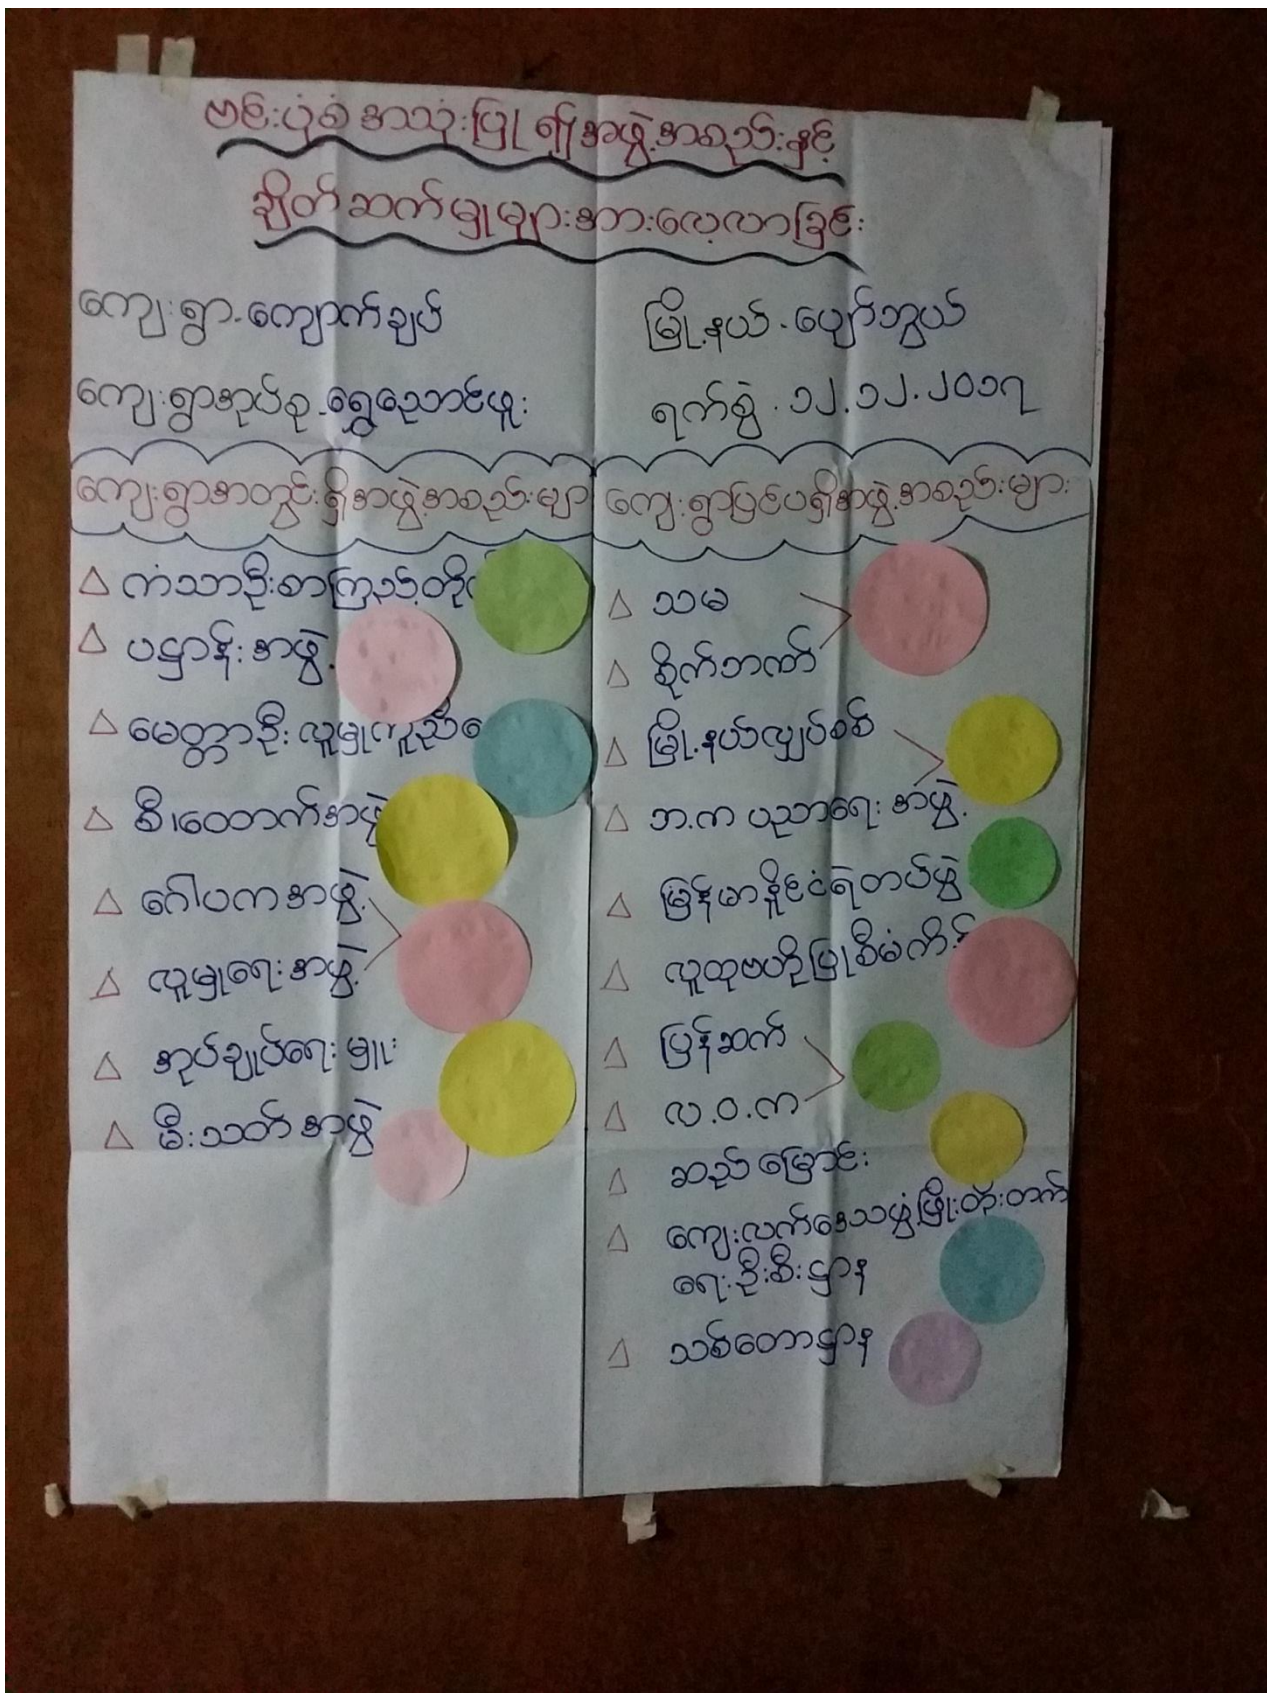 ဗင်းပုံစံအသုံးပြု၍အဖွဲ့အစည်းနှင့်
ချိတ်ဆက်မှုများအားလေ့လာခြင်း
ကျေးရွာ-ကျောက်ချပ်
မြို့နယ်-ပျော်ဘွယ်
ကျေးရွာအုပ်စု-ရွှေညောင်ဖူး
ရက်စွဲ-၁၂.၁၂.၂၀၁၇
ကျေးရွာအတွင်းရှိအဖွဲ့အစည်းများ
△ ကံသာဦးစာကြည့်တိုက်
△ ပဋ္ဌာန်းအဖွဲ့
△ မေတ္တာဦးလူမှုကူညီ
△ မီးထောက်အဖွဲ့
△ ဂေါပကအဖွဲ့
△ လူမှုရေးအဖွဲ့
△ အုပ်ချုပ်ရေးမှူး
△ မီးသတ်အဖွဲ့
ကျေးရွာပြင်ပရှိအဖွဲ့အစည်းများ
△ သမ
△ စိုက်ဘဏ်
△ မြို့နယ်လျှပ်စစ်
△ ဘ.က ပညာရေးအဖွဲ့
△ မြန်မာနိုင်ငံရဲတပ်ဖွဲ့
△ လူထုဗဟိုပြုစီမံကိန်း
△ ပြန်ဆက်
△ လ.ဝ.က
△ ဆည်မြောင်း
△ ကျေးလက်ဒေသဖွံ့ဖြိုးတိုးတက်
ရေးဦးစီးဌာန
△ သစ်တောဌာန